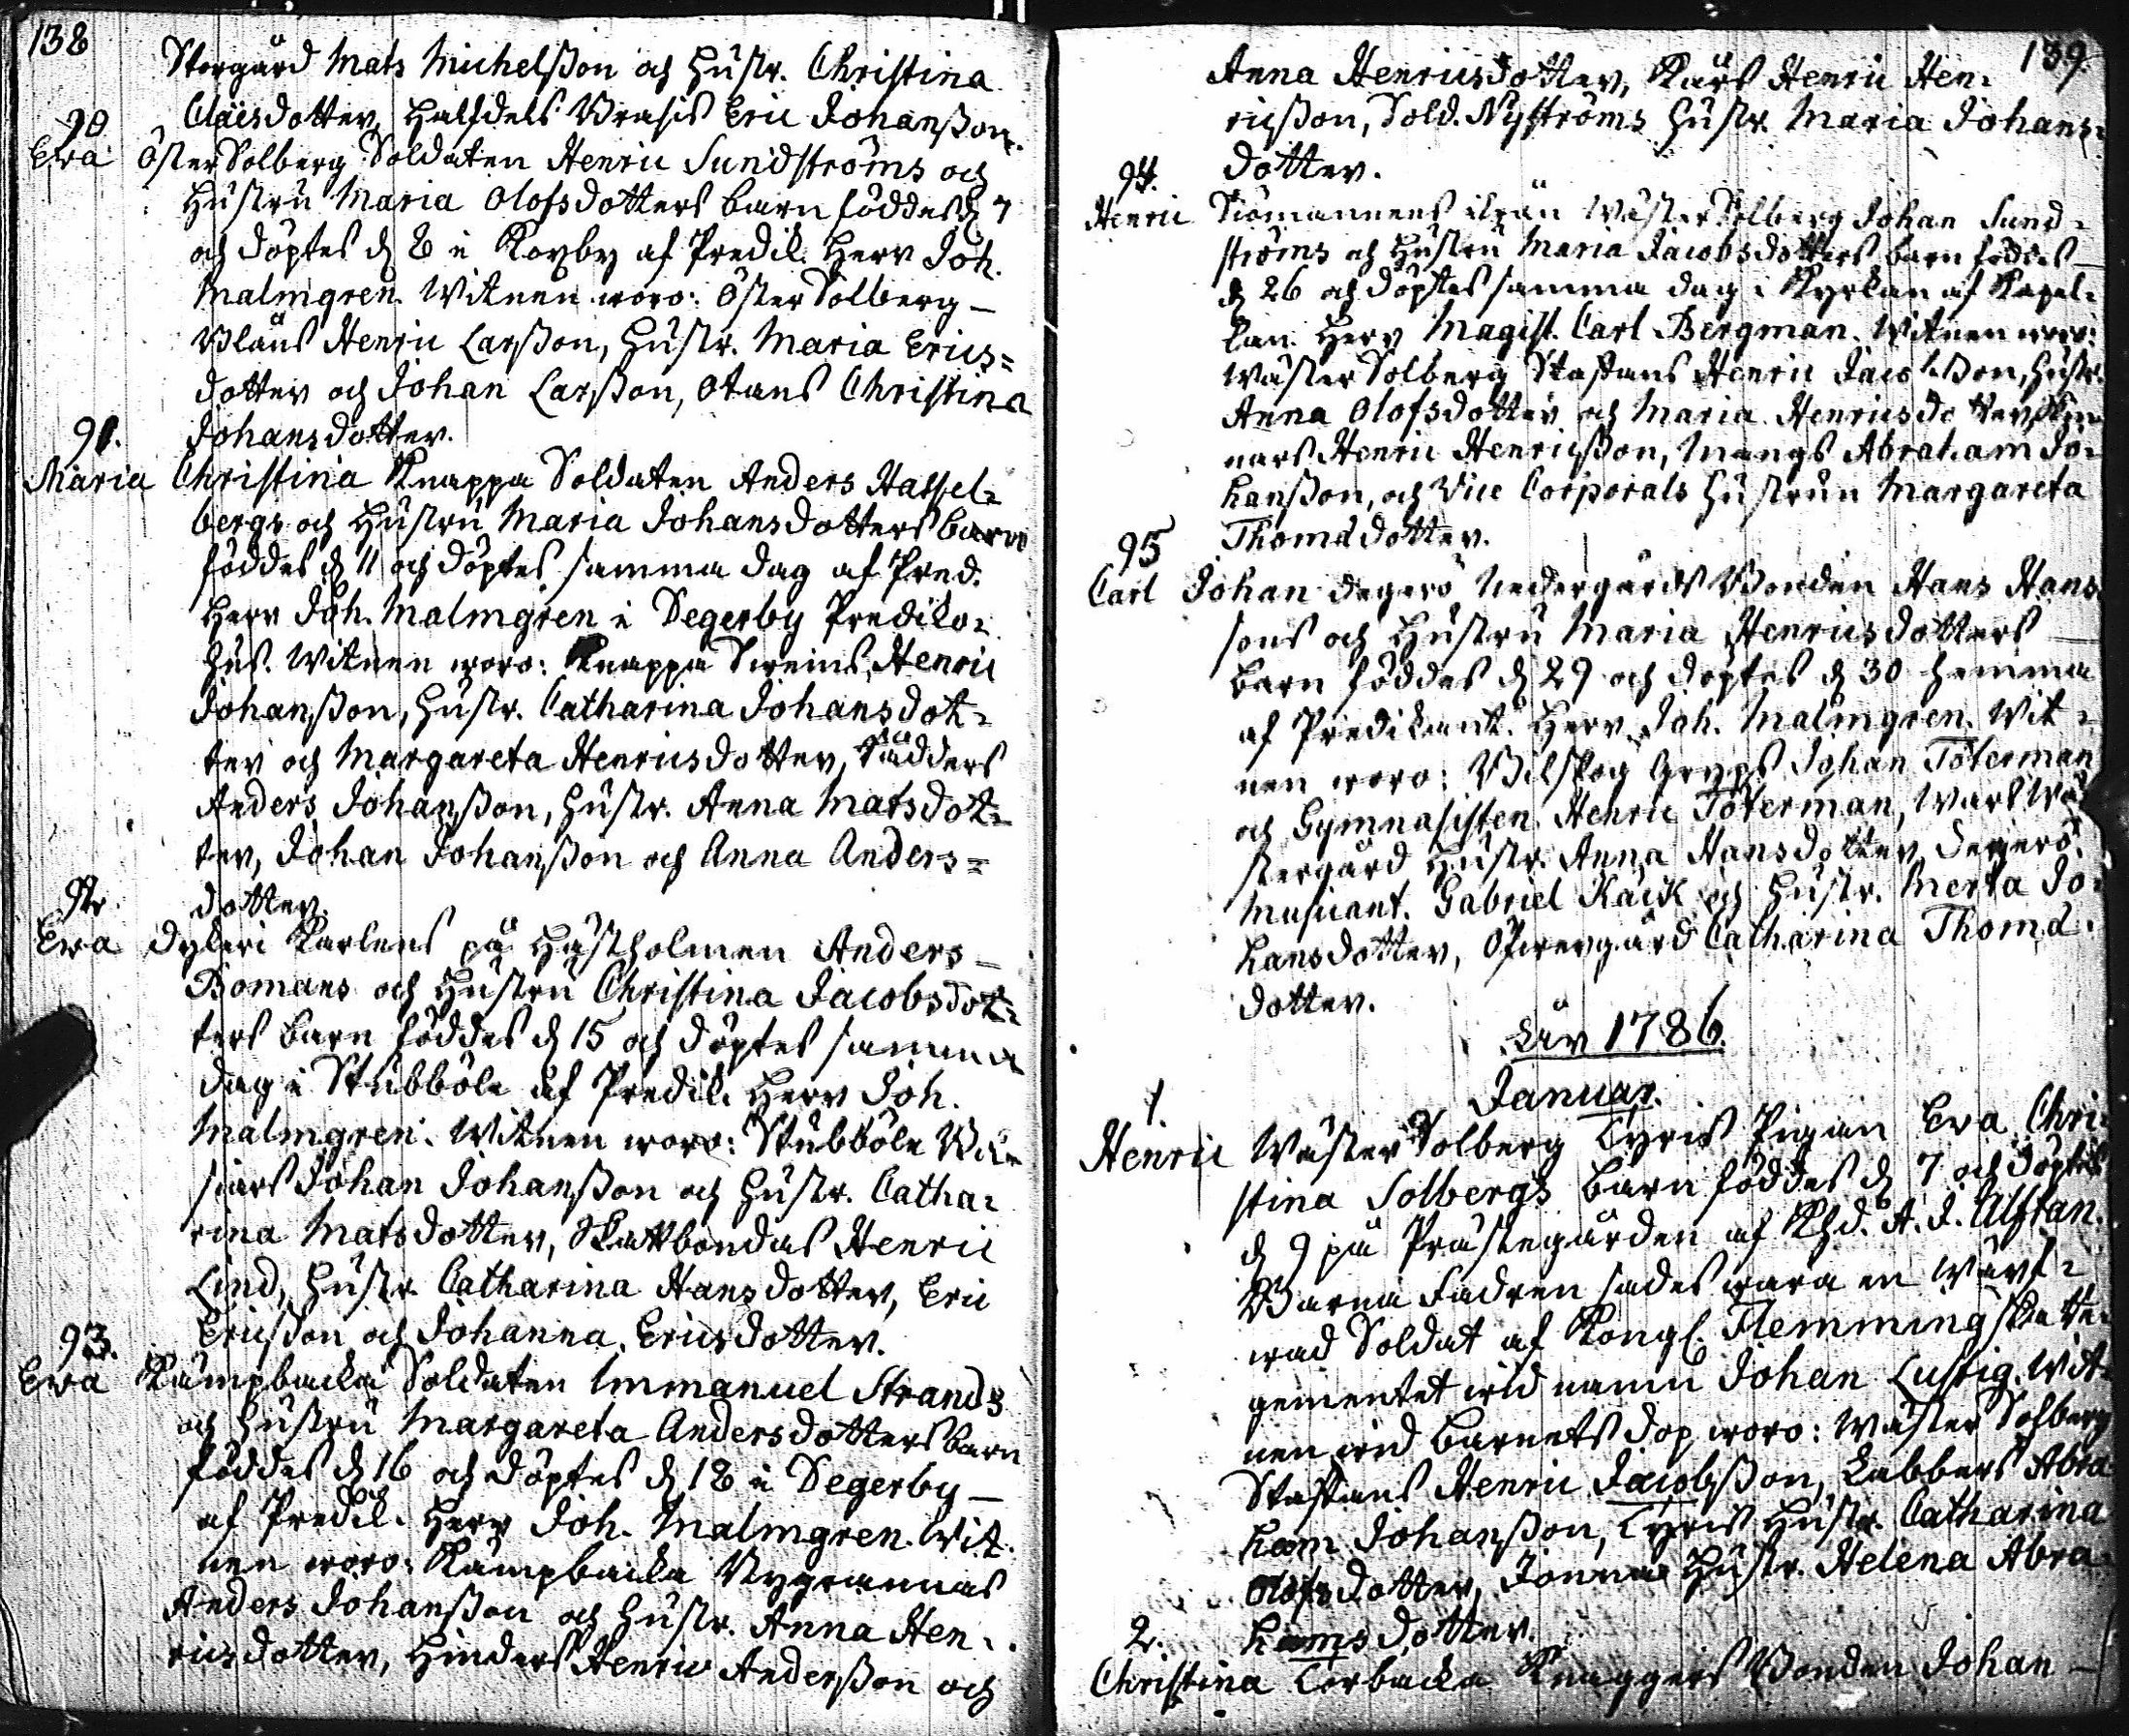 138
Storgård Mats Michelsson och Hustr. Christina
Claësdotter, Halfdels Brasis Eric Johansson.
90
Ewa Öster Solberg Soldaten Henric Sundströms och
Hustru Maria Olofsdotters barn föddes d 7
och döptes d 8 i Roxby af Predik. Herr Joh.
Malmgren. Witnen woro: Öster Solberg
Henric Larsson, Hustr. Maria Erics=
dotter och Johan Larsson, Christina
Johansdotter.
91.
Maria Christina Knappa Soldaten Anders Hassel=
bergs och Hustru Maria Johansdotters barn
föddes d 11 och döptes samma dag af Pred.
Herr Joh. Malmgren i Degerby Prediko=
hus. Witnen woro: Knappa Sweins Henric
Johansson, Hustr. Catharina Johansdot=
ter och Margareta Henricsdotter, Sadders
Anders Johansson, Hustr. Anna Matsdot=
ter, Johan Johansson och Anna Anders=
dotter.
92
Ewa Dykeri Karlens på Hästholmen Anders
Bomans och Hustru Christina Jacobsdot=
ters barn föddes d 15 och döptes samma
dag i Stubböle af Predik. Herr Joh.
Malmgren. Witnen woro: Stubböle
Johan Johansson och Hustr. Catha=
rina Matsdotter, Skattbondas Henric
Lind, Hustr. Catharina Hansdotter, Eric
Ericsson och Johanna Ericsdotter.
93.
Ewa Kampbacka Soldaten Immanuel Strands
och Hustru Margareta Andersdotters barn
föddes d 16 och döptes d 18 i Degerby
af Predik. Herr Joh. Malmgren. Wit=
nen woro: Kampbacka Nygrannas
Anders Johansson och Hustr. Anna Hen=
ricsdotter, Hinders Henric Andersson och
139.
Anna Henricsdotter, Kårs Henric Hen=
ricsson, Sold. Nyströms Hustr. Maria Johans=
dotter.
94.
Henric Siömannens ifrån Wäster Solberg Johan Sund=
ströms och Hustru Maria Jacobsdotters barn föddes
d 26 och döptes samma dag i Kyrkan af Kapel=
lan. Herr Magist. Carl Bergman. Witnen woro:
Wäster Solberg Staffans Henric Jacobsson, Hustr.
Anna Olofsdotter och Maria Henricsdotter,
Henric Henricsson, Mangs Abraham Jo=
hansson, och Vice Corporals Hustrun Margareta
Thomædotter.
95
Carl Johan Degerö Nedergårds Bonden Hans Hans
sons och Hustru Maria Henricsdotters
barn föddes d 29 och döptes d 30 hemma
af Predikant. Herr Joh. Malmgren. Wit=
nen woro: Bilskog Grypps Johan Töterman
och Gymnasisten Henric Töterman, Wä=
stergård Hustr. Anna Hansdotter, Degerö
Musicant. Gabriel Käck och Hustr. Merta Jo=
hansdotter, Öfwergård Catharina Thomæ
dotter.
Åhr 1786.
Januar.
1.
Henric Wäster Solberg Tyris Pigan Ewa Chri=
stina Solbergs barn föddes d 7 och döptes
d 9 på Prästegården af Khd. A. J. Alftan.
Barna Fadren sades wara en wärf=
wad Soldat af Kongl. Flemmingska Re=
gementet wid namn Johan Lustig. Wit=
nen wid barnets dop woro: Wäster Solberg
Staffans Henric Jacobsson, Labbers Abra=
ham Johansson, Tyris Hustr. Catharina
Olofsdotter, Jonnas Hustr. Helena Abra=
hamsdotter.
2.
Christina Torbacka Knaggers Bonden Johan